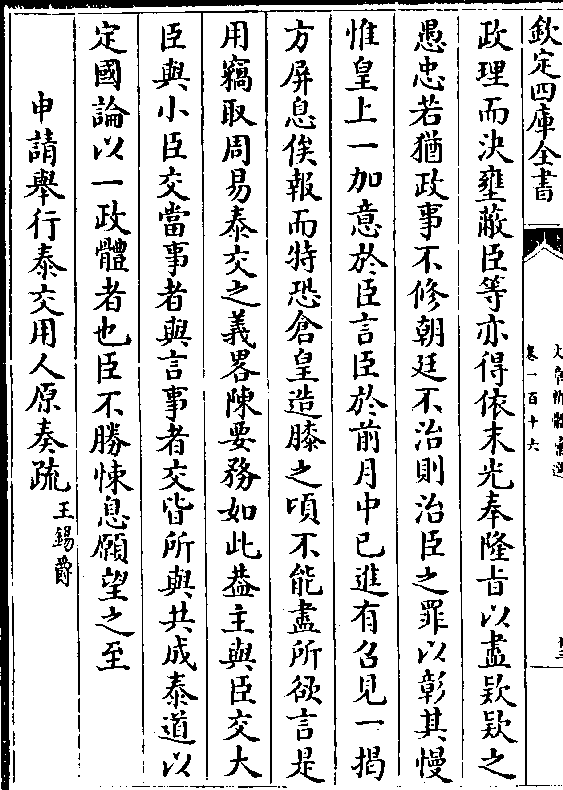 欽定四庫全書
卷一百十六
政理而決壅蔽臣等亦得依末光奉隆旨以盡欵欵之
愚忠若猶政事不修朝廷不治則治臣之罪以彰其慢
惟皇上一加意於臣言臣於前月中已進有召見一揭
方屏息俟報而特恐倉皇造膝之頃不能盡所欲言是
用竊取周易泰交之義畧陳要務如此葢主與臣交大
臣與小臣交當事者與言事者交皆所與共成泰道以
定國論以一政體者也臣不勝悚息願望之至
申請舉行泰交用人原奏疏 王錫爵